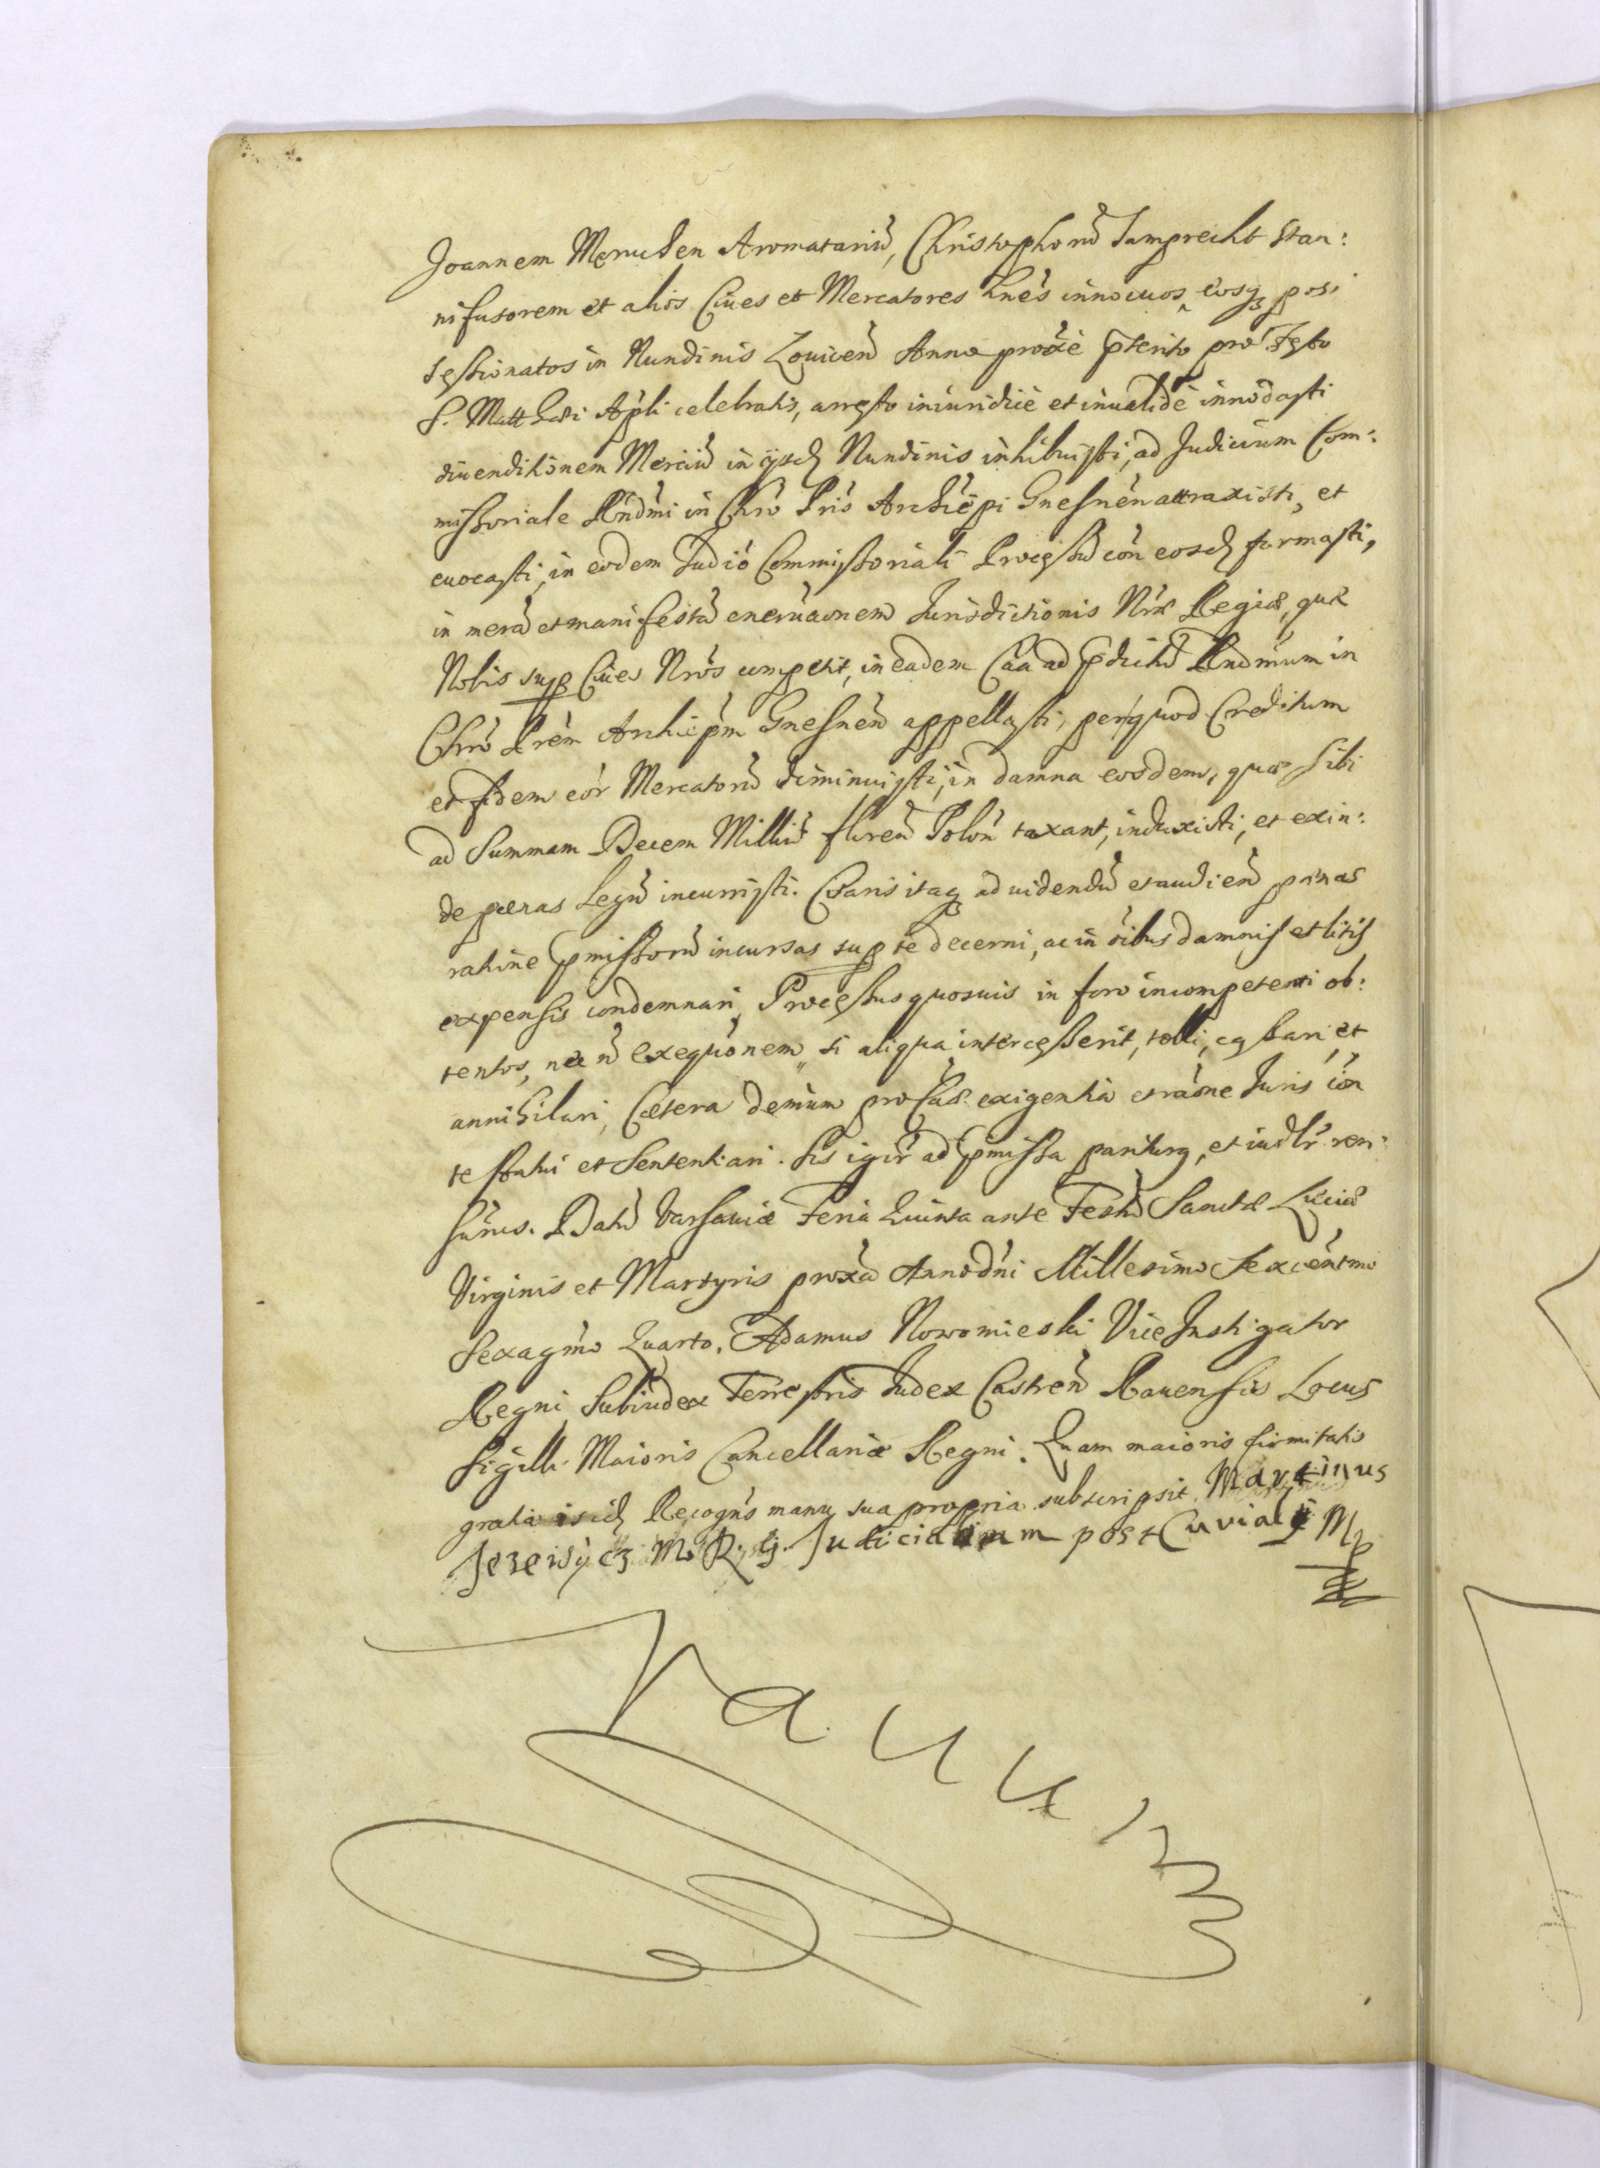 Joannem Aromatariũ, Christophorũ Lamprecht Stan:
nifusorem et alios Ciues et Mercatores innocuos, eosq3 pos:
sessionatos in Nundinis Louicen̄ Anno proxe pterito pro Festo
S. Matthæi Apli celebratis, aresto iniuridice et inualide innodasti
diuenditionem Merciũ in ijsd Nundinis inhibuisti, ad Judicium Com:
missoriale Rndmi in Chro Pris Archiepi Gnesnen attraxisti, et
euocasti, in eodem Judio Commissoriali Processũ con eosd formasti,
in merã et manifestã eneruaonem Jurisdictionis Nræ Regiæ, quæ
Nobis sup Ciues Nros competit, in eadem Caa ad pdictũ Rndmum in
Chro Prem Archiepm Gnesnen̄ appellasti, per quod Creditum
et fidem eor Mercatorũ diminuisti, in damna eosdem, quæ sibi
ad Summam Decem Milliũ floren̄ Polon̄ taxant, induxisti, et exin:
de pænas Legũ incurristi. Citaris itaq ad uidendũ et audien̄ pænas
ratione pmissorũ incursas sup te decerni, ac in oibus damnis et litis
expensis condemnari, Processus quosuis in foro incompetenti ob:
tentos, nec n̄ exequonem, si aliqua intercesserit, tolli, cassari, et
annihilari, Cætera demum pro Caæ exigentia et raone Juris con
te statui et Sententiari. Sis igir ad pmissa pariturq, et iudlr ren:
surus. Datũ Varsauiæ Feria Quinta ante Festũ Sanctæ Luciæ
Virginis et Martyris proxa Anno Dni Millesimo Sexcentmo
Sexagmo Quarto. Adamus Nowomieski Vice Instigator
Regni Subiudex Terrestris Judex Castren̄ Rauensis Locus
Sigilli Maioris Cancellariæ Regni. Quam maioris firmitatis
gratia isd Recogns manu sua propria subscripsit Martinus
M. R. Judicialium